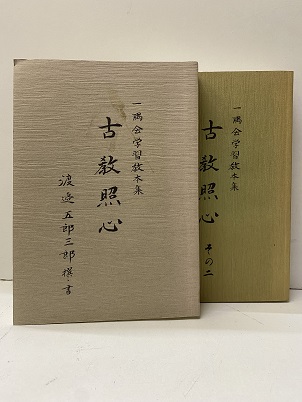 一隅会学習教本集
古教照心
渡邉五郎三郎 撰・書
一隅会学習教本集
古教照心
その二